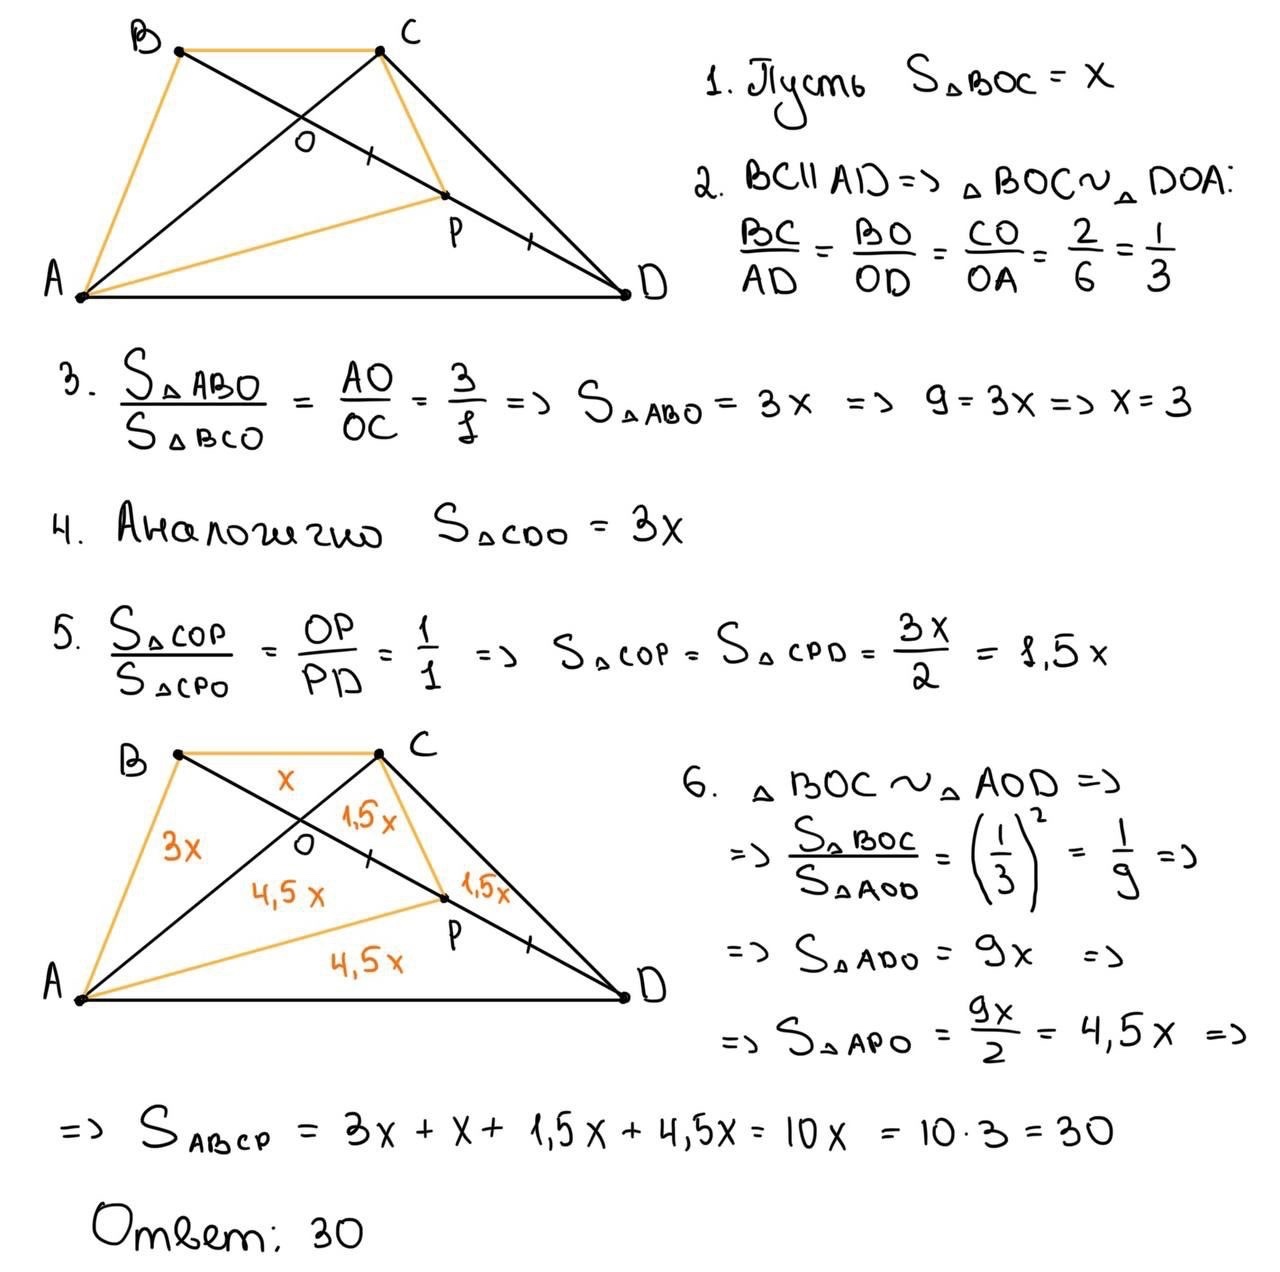 B
C
O
P
A
D
1. Пусть S△BOC = x
2. BC || AD => △BOC ~ △DOA:
BC/AD = BO/OD = CO/OA = 2/6 = 1/3
3. S△ABO/S△BCO = AO/OC = 3/1 => S△ABO = 3x => 9 = 3x => x = 3
4. Аналогично S△CDO = 3x
5. S△COP/S△CPD = OP/PD = 1/1 => S△COP = S△CPD = 3x/2 = 1,5x
B
C
x
3x
1,5x
O
4,5x
1,5x
P
4,5x
A
D
6. △BOC ~ △AOD =>
=> S△BOC/S△AOD = (1/3)² = 1/9 =>
=> S△ADO = 9x =>
=> S△APO = 9x/2 = 4,5x =>
=> S ABCP = 3x + x + 1,5x + 4,5x = 10x = 10·3 = 30
Ответ: 30